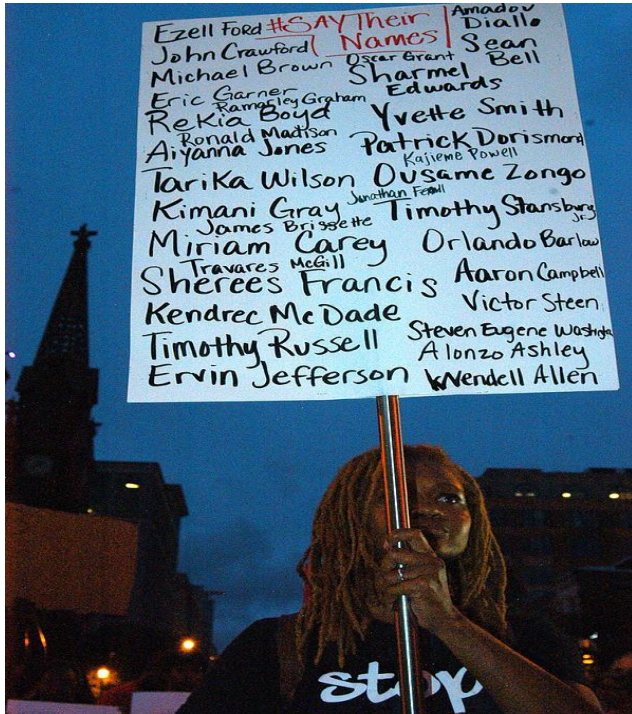 Ezell Ford #SAY Their Names Amadou Diallo
John Crawford Sean Bell
Michael Brown Oscar Grant
Eric Garner Sharmel Edwards
Ramarley Graham
Rekia Boyd Yvette Smith
Ronald Madison Patrick Dorismond
Aiyanna Jones Kajieme Powell
Tarika Wilson Ousame Zongo
Jonathan Ferrell
Kimani Gray Timothy Stansbury Jr.
James Brissette
Miriam Carey Orlando Barlow
Travares McGill
Sherees Francis Aaron Campbell
Kendrec McDade Victor Steen
Timothy Russell Steven Eugene Washington
Alonzo Ashley
Ervin Jefferson Wendell Allen
stop